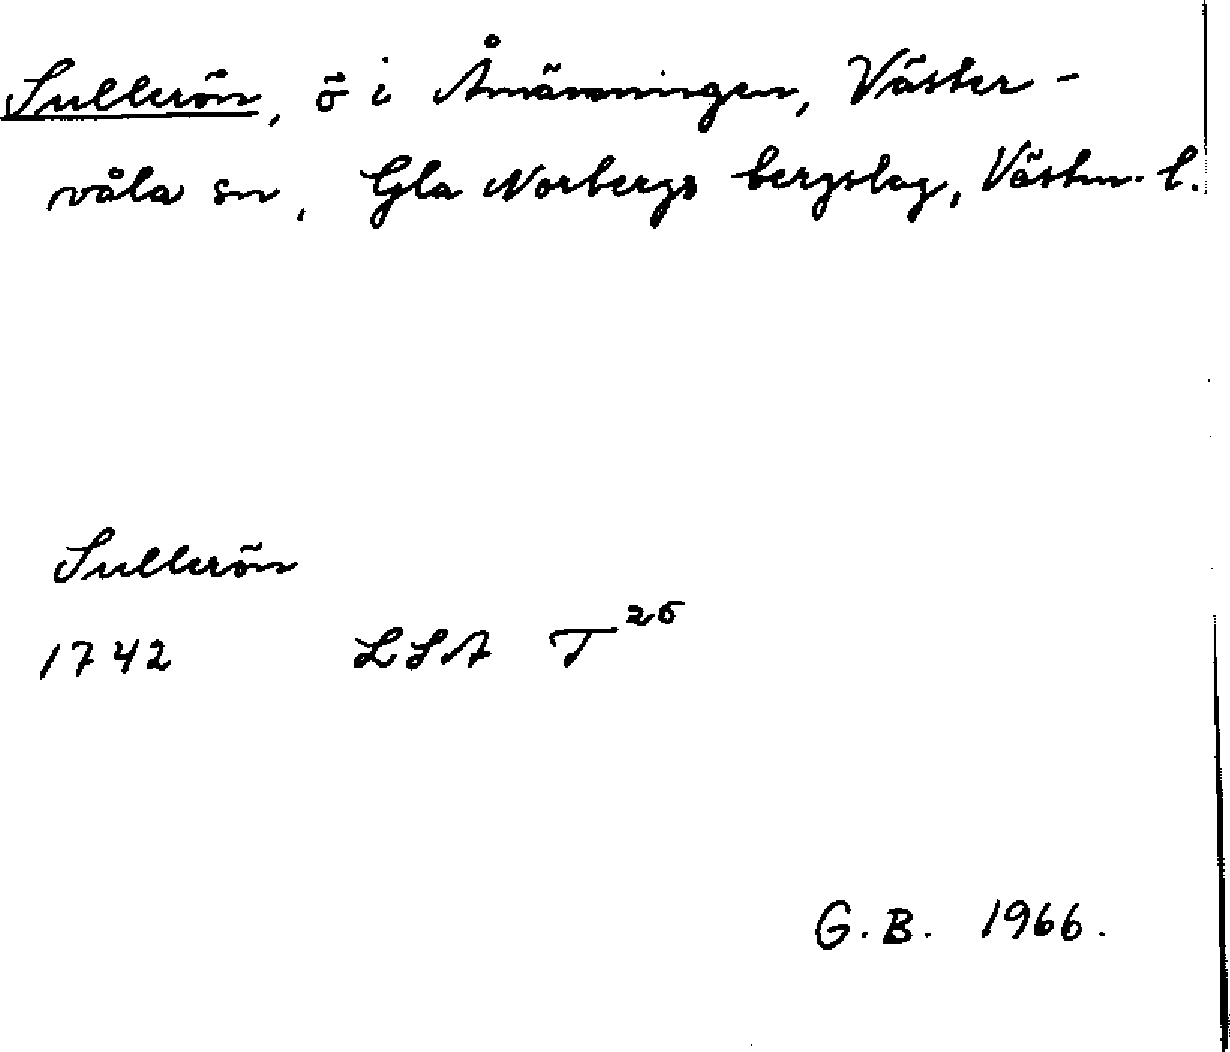 Sullerön, ö i Åmänningen, Väster-
våla sn, Gla Norbergs bergslag, Västm. l.
Sullerön
1742 LSA T 26
G. B. 1966.